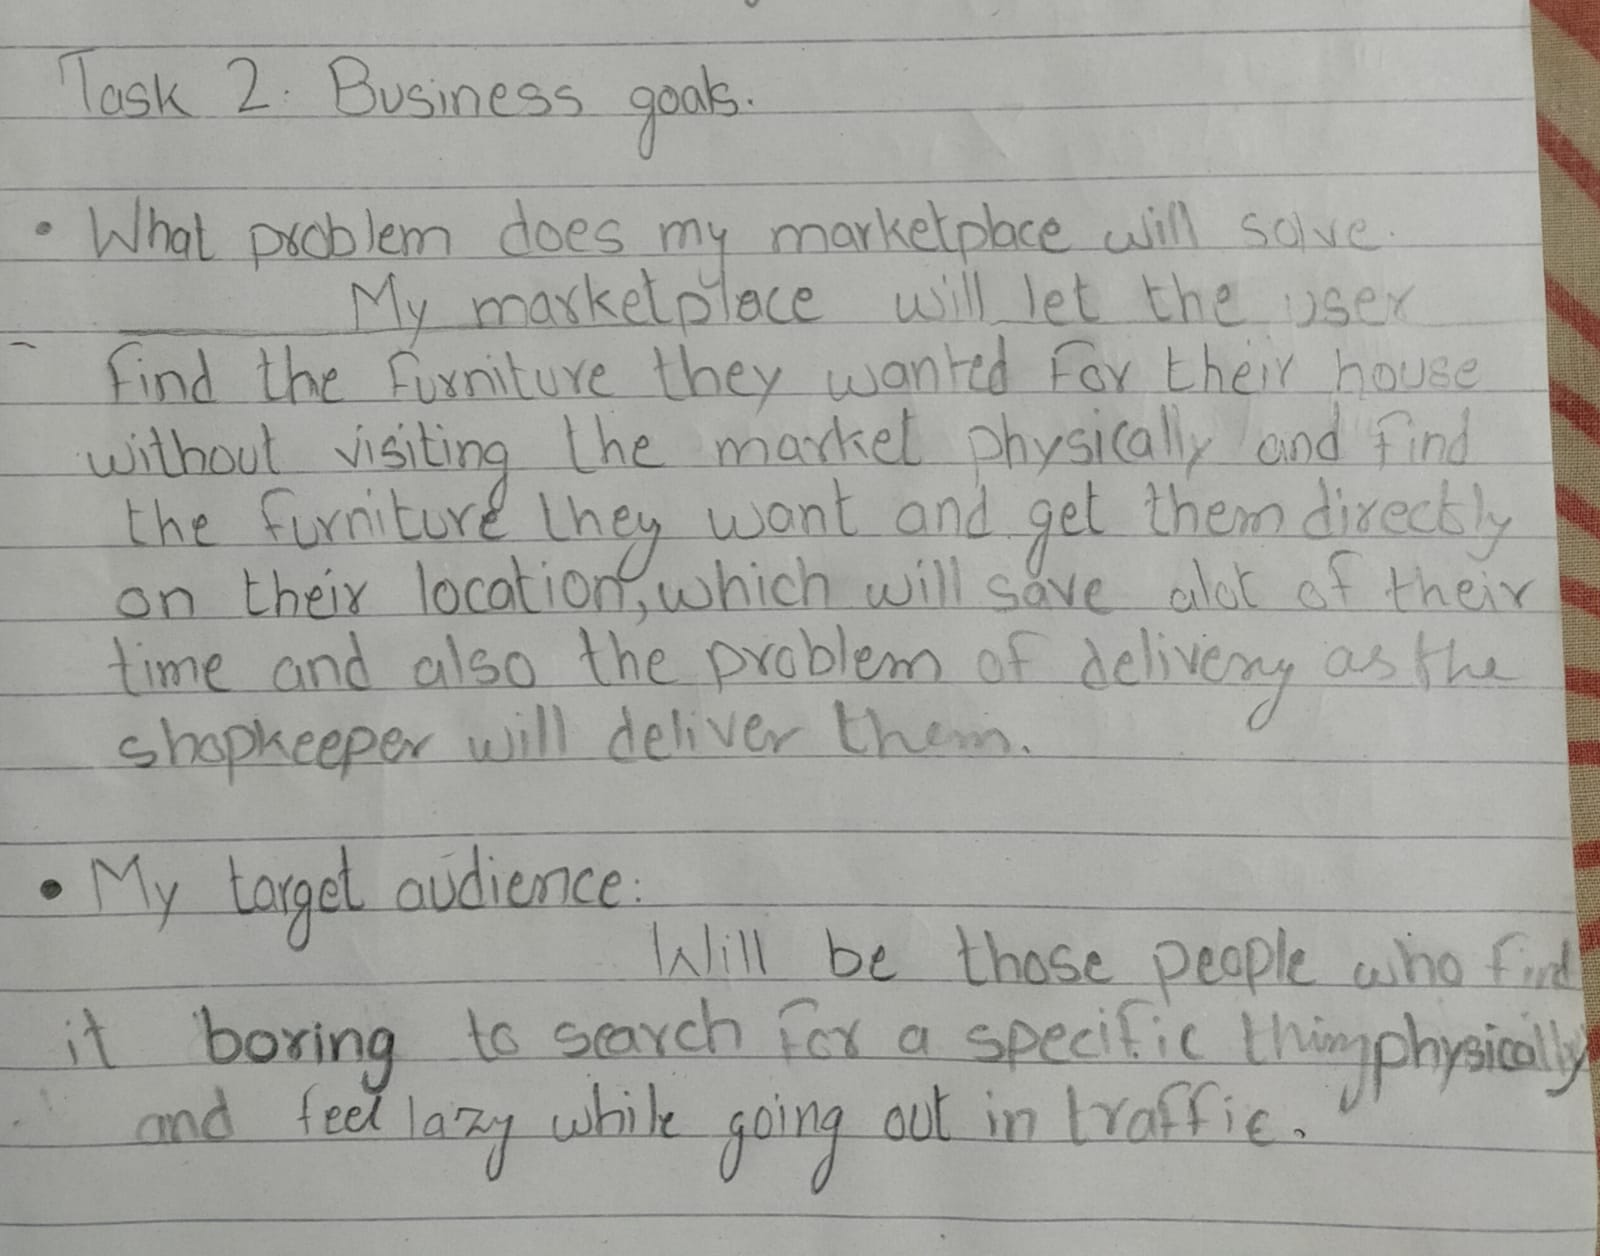 Task 2: Business goals.
• What problem does my marketplace will solve.
My marketplace will let the user
find the furniture they wanted for their house
without visiting the market physically and find
the furniture they want and get them directly
on their location, which will save alot of their
time and also the problem of delivery as the
shopkeeper will deliver them.
• My target audience:
Will be those people who find
it boring to search for a specific thing physically
and feel lazy while going out in traffic.